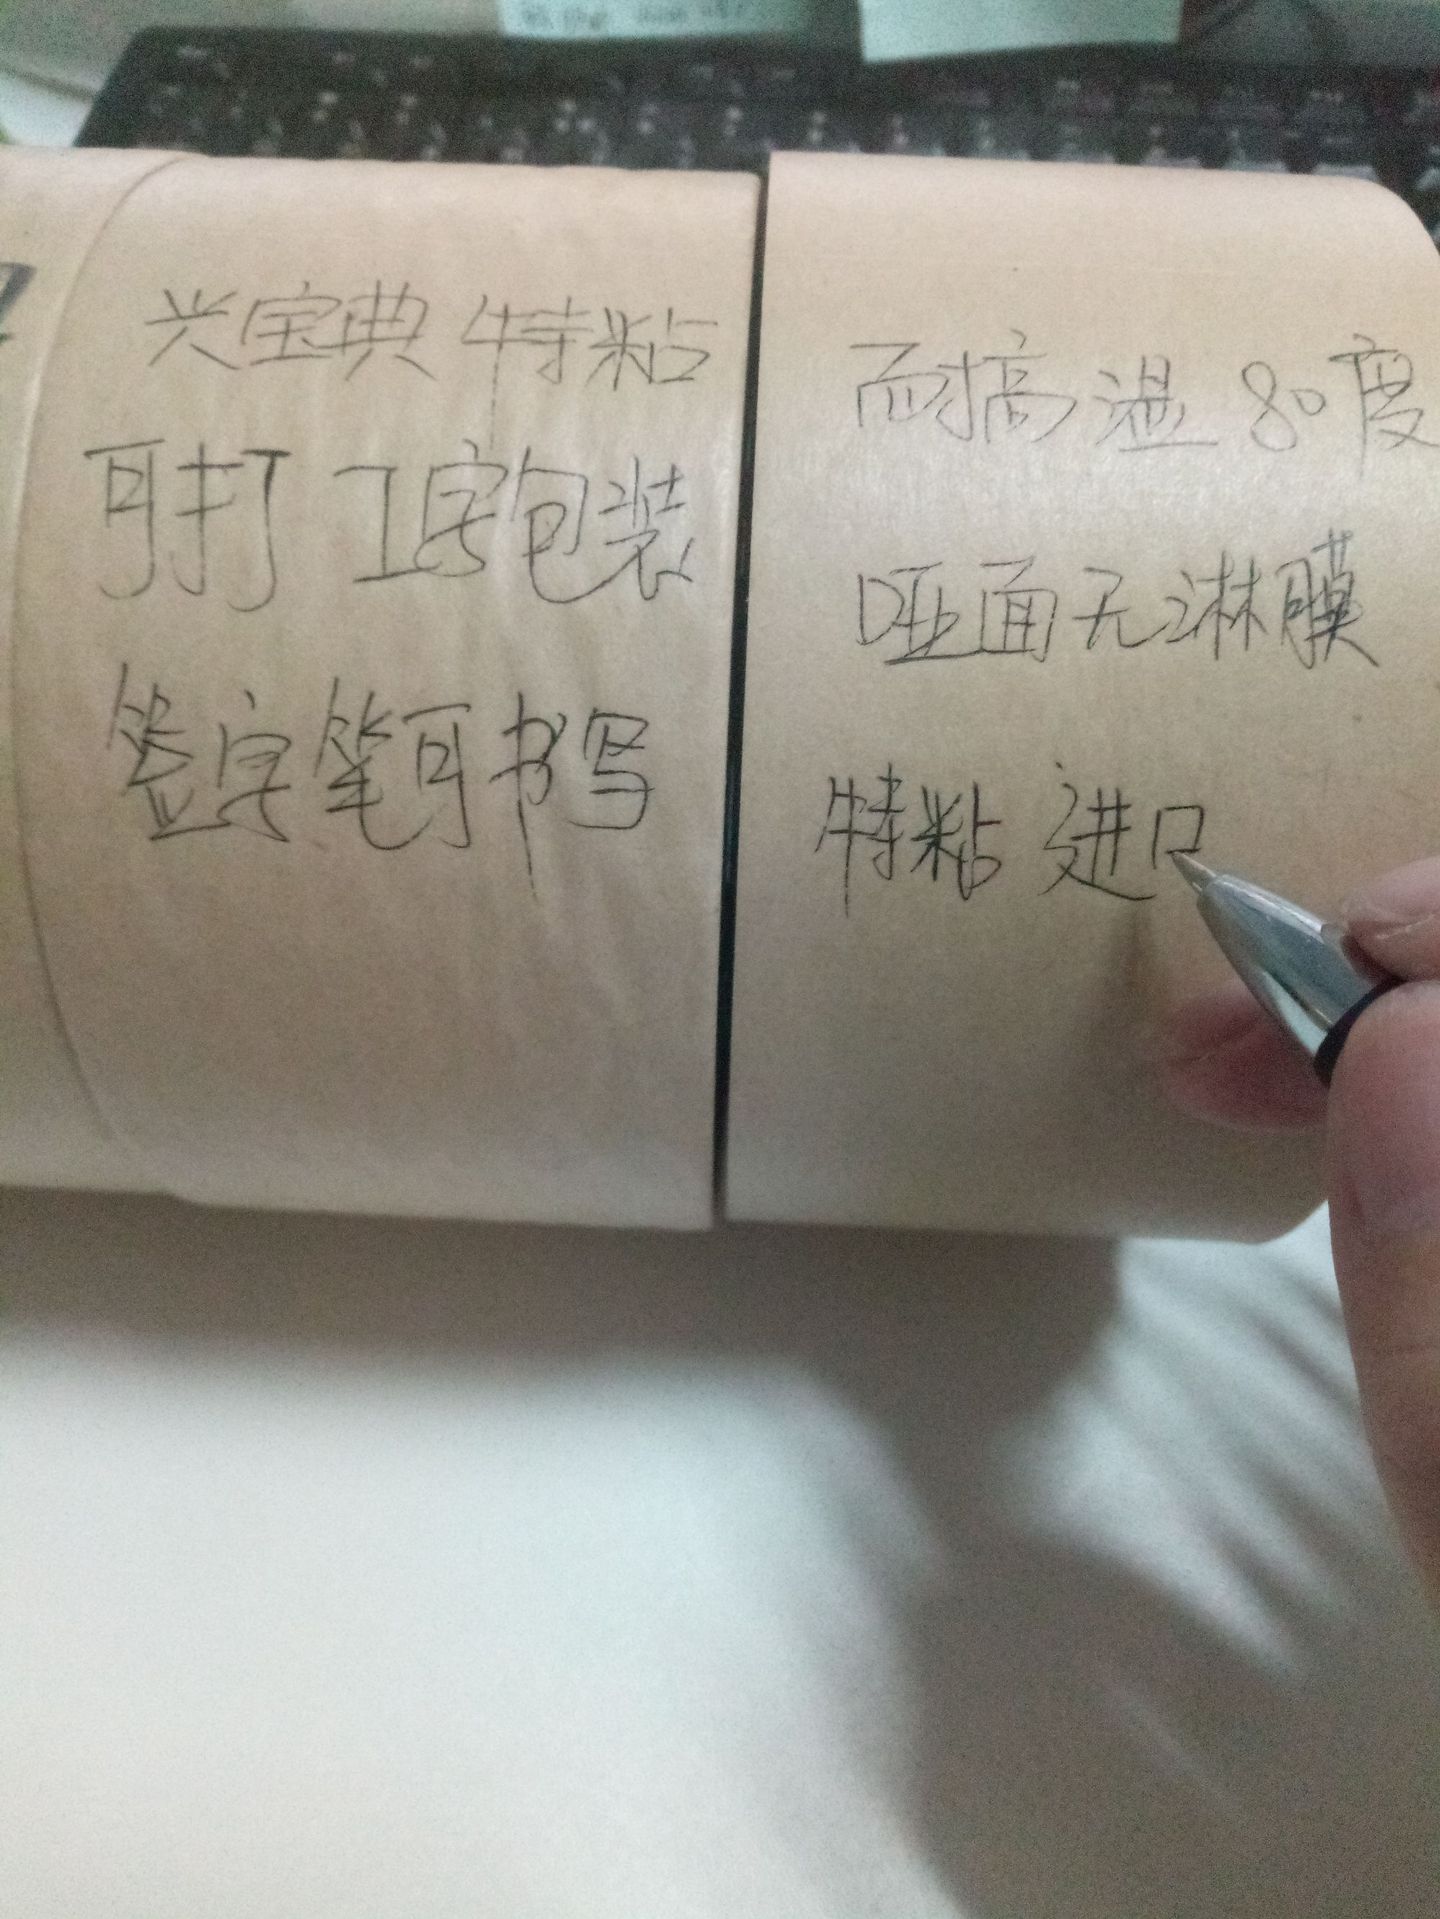 兴宝典 特粘
可打 工字包装
签字笔可书写
耐搞温 80度
哑面无淋膜
特粘 进口